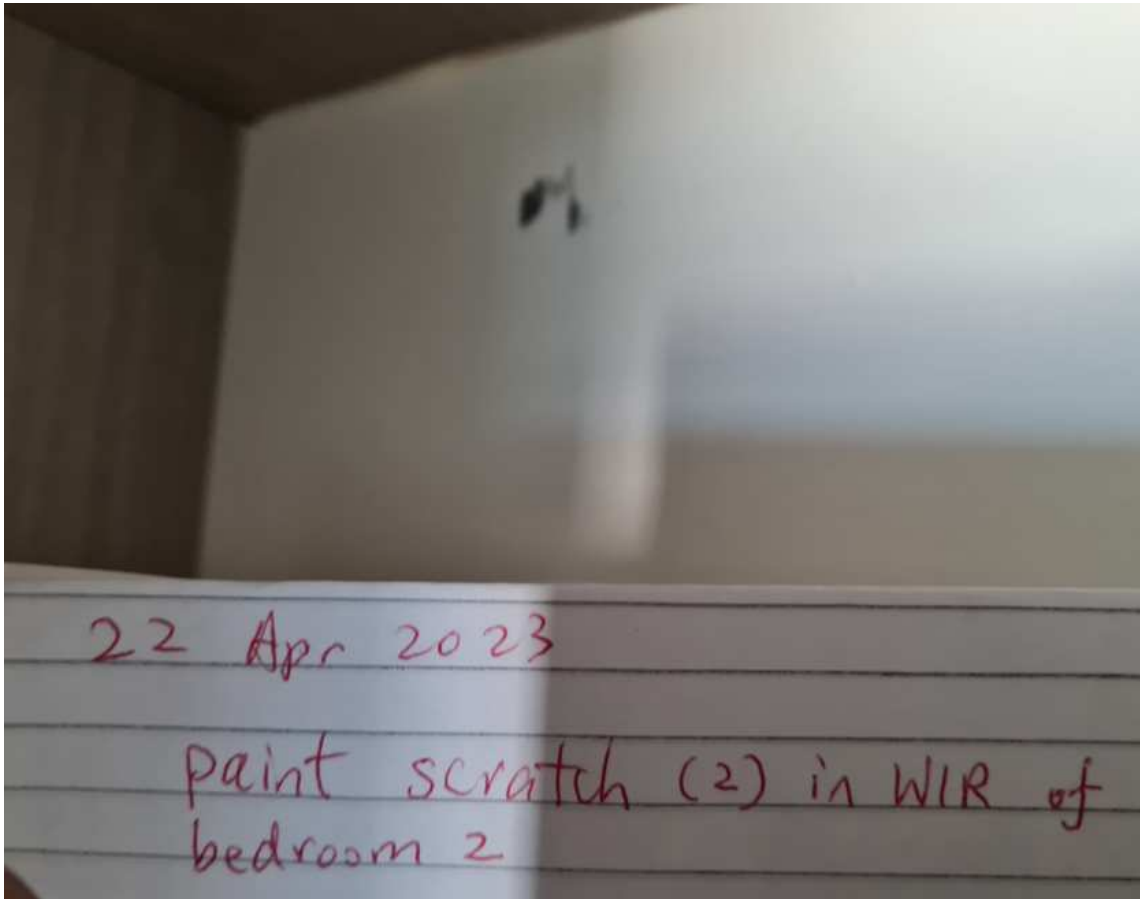 22 Apr 2023
paint scratch (2) in WIR of
bedroom 2